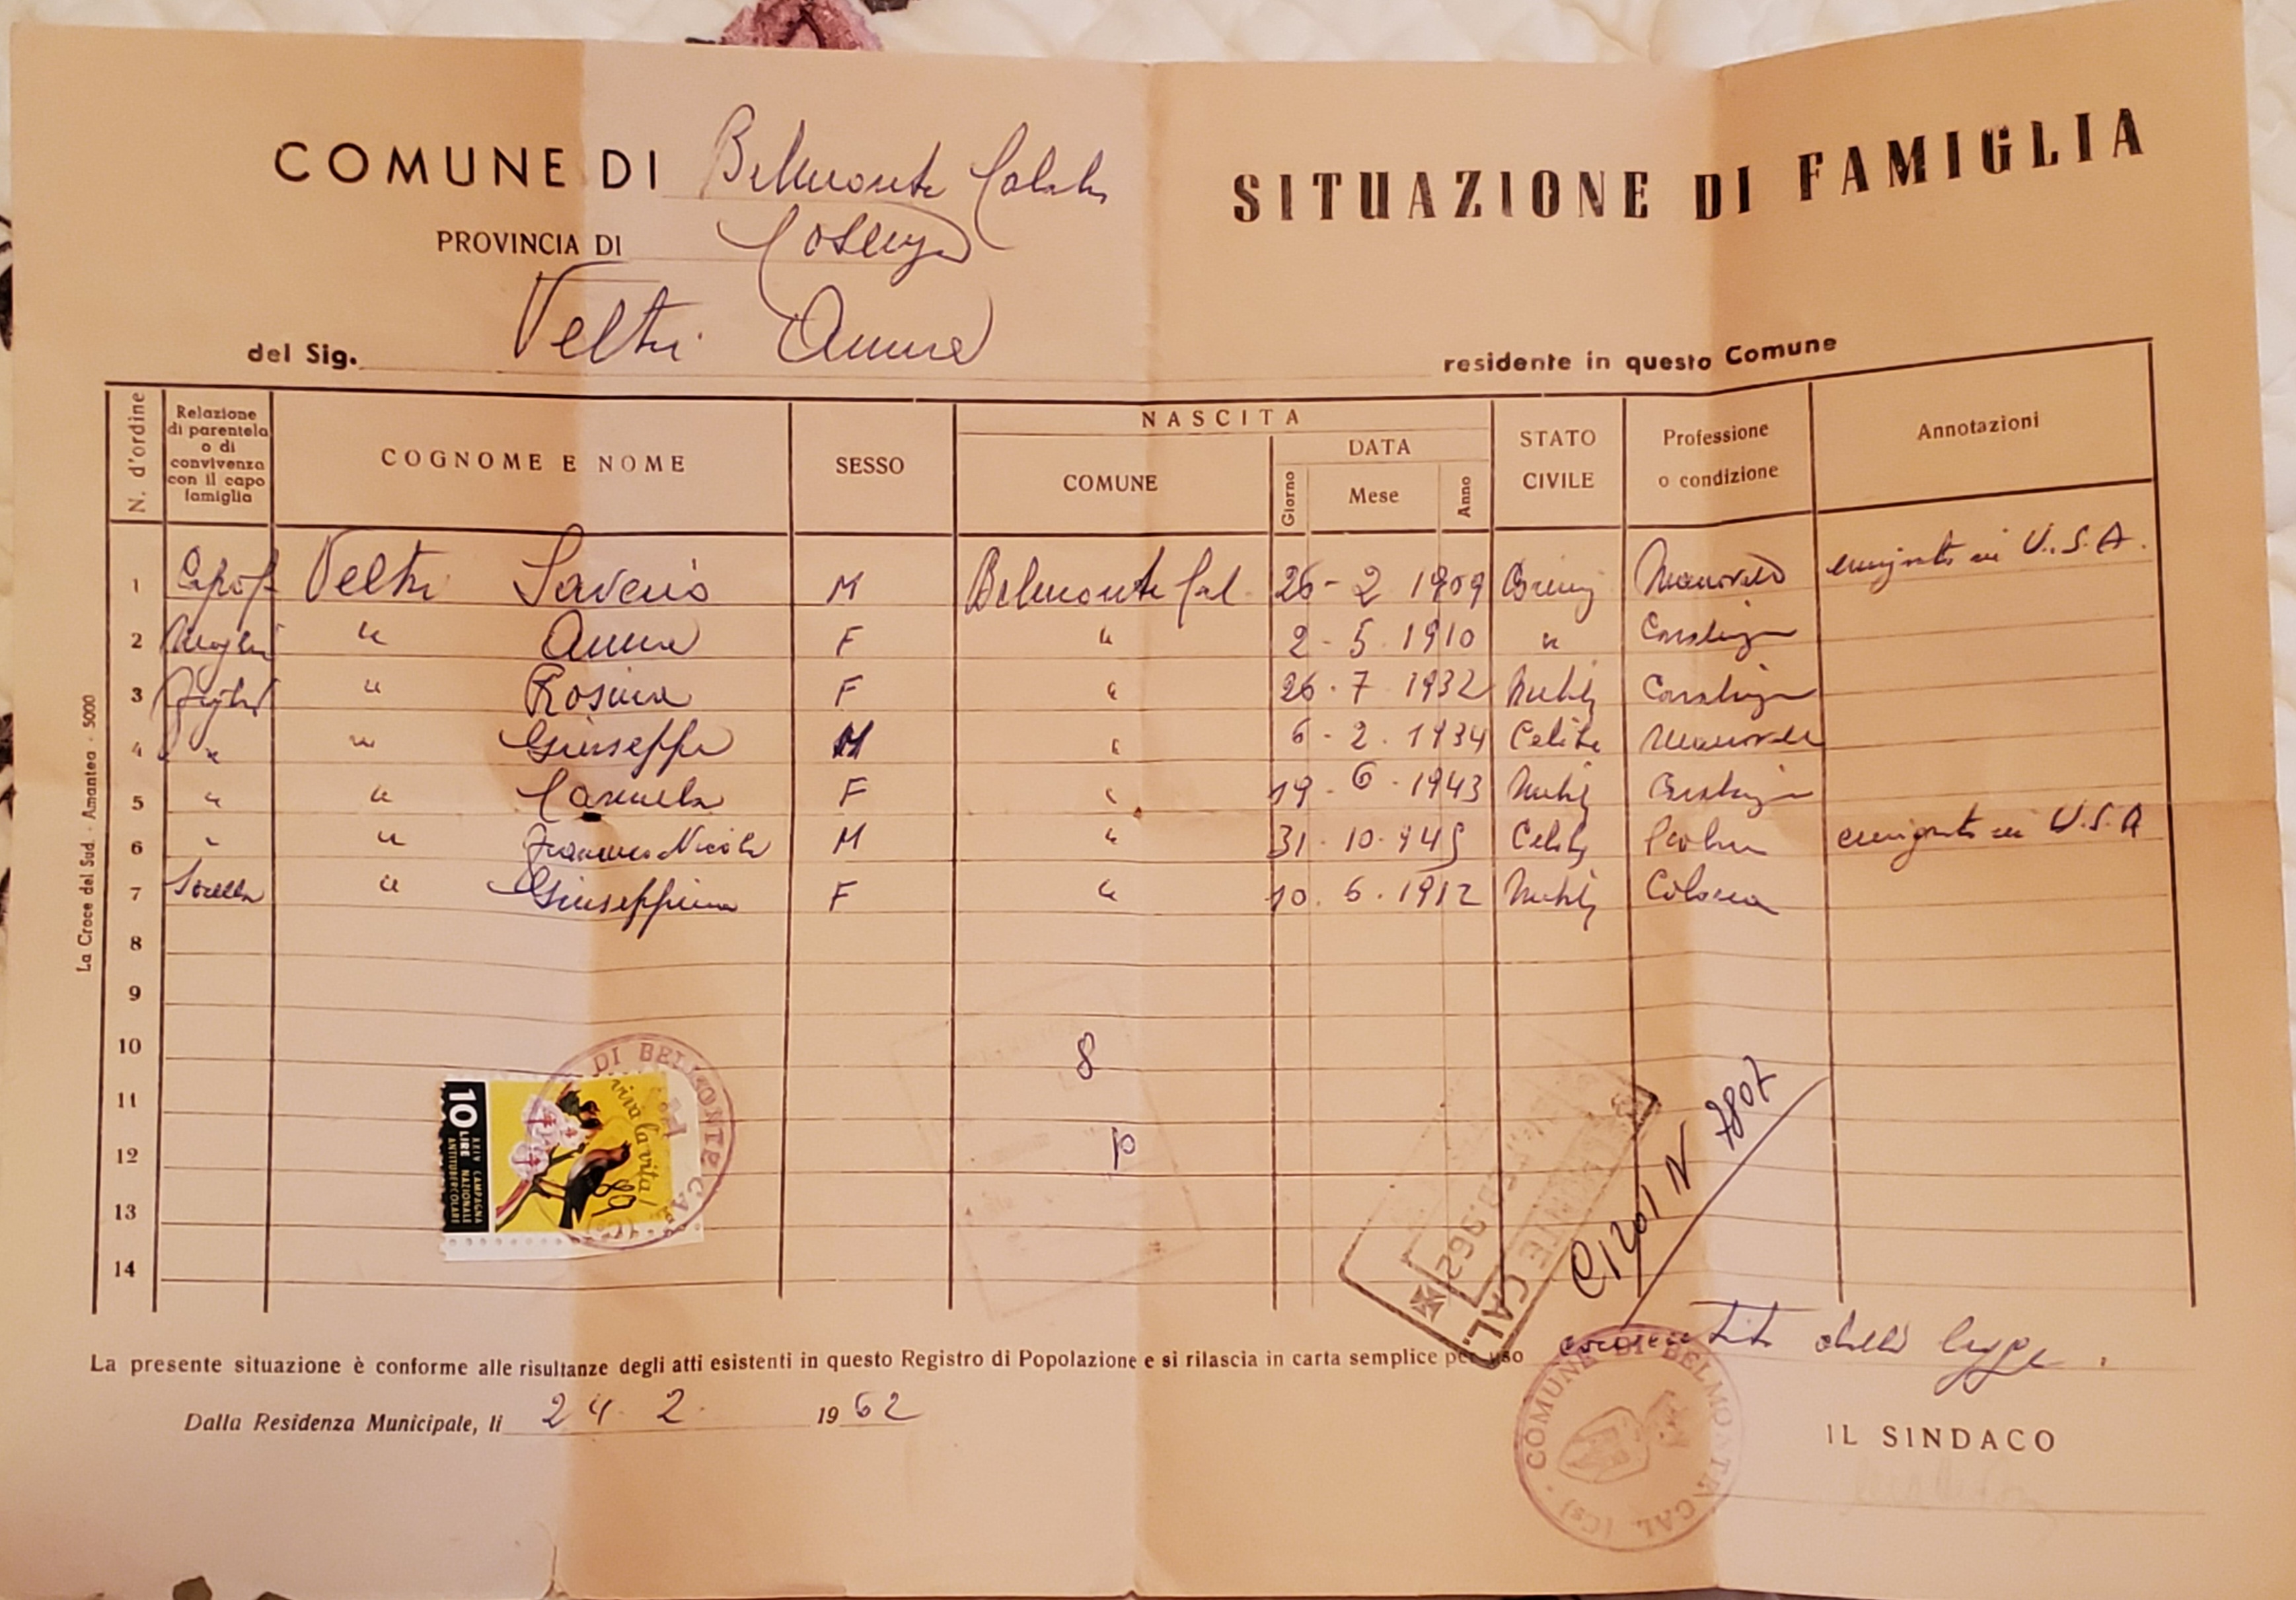 COMUNE DI Belmonte Calabro
SITUAZIONE DI FAMIGLIA
PROVINCIA DI Cosenza
del Sig. Veltri Anna residente in questo Comune
N. d'ordine
Relazione di parentela o di convivenza con il capo famiglia
COGNOME E NOME
SESSO
NASCITA
COMUNE
DATA
Giorno Mese Anno
STATO CIVILE
Professione o condizione
Annotazioni
1 Capof. Veltri Saverio M Belmonte Cal. 26 - 2 1909 Manovale emigrato in U.S.A.
2 Moglie " Anna F " 2 - 5 1910 " Casalinga
3 Figlia " Rosina F " 26 - 7 1932 Nubile Casalinga
4 " " Giuseppe M " 6 - 2 - 1934 Celibe Manovale
5 " " Carmela F " 19 - 6 - 1943 Nubile Casalinga
6 " " Francesco Nicola M " 31 - 10 - 945 Celibe Scolaro emigrato in U.S.A
7 Sorella " Giuseppina F " 10 - 6 - 1912 Nubile Colona
8
9
10 8
11
12 10
13
14
DI BELMONTE CAL. (Cs)
10 LIRE
XXIV CAMPAGNA NAZIONALE ANTITUBERCOLARE
viva la vita!
BELMONTE CAL.
N 7807
La presente situazione è conforme alle risultanze degli atti esistenti in questo Registro di Popolazione e si rilascia in carta semplice per uso consentito dalla legge.
Dalla Residenza Municipale, li 24. 2. 1962
COMUNE DI BELMONTE CAL. (Cs)
IL SINDACO
La Croce del Sud - Amantea - 5000